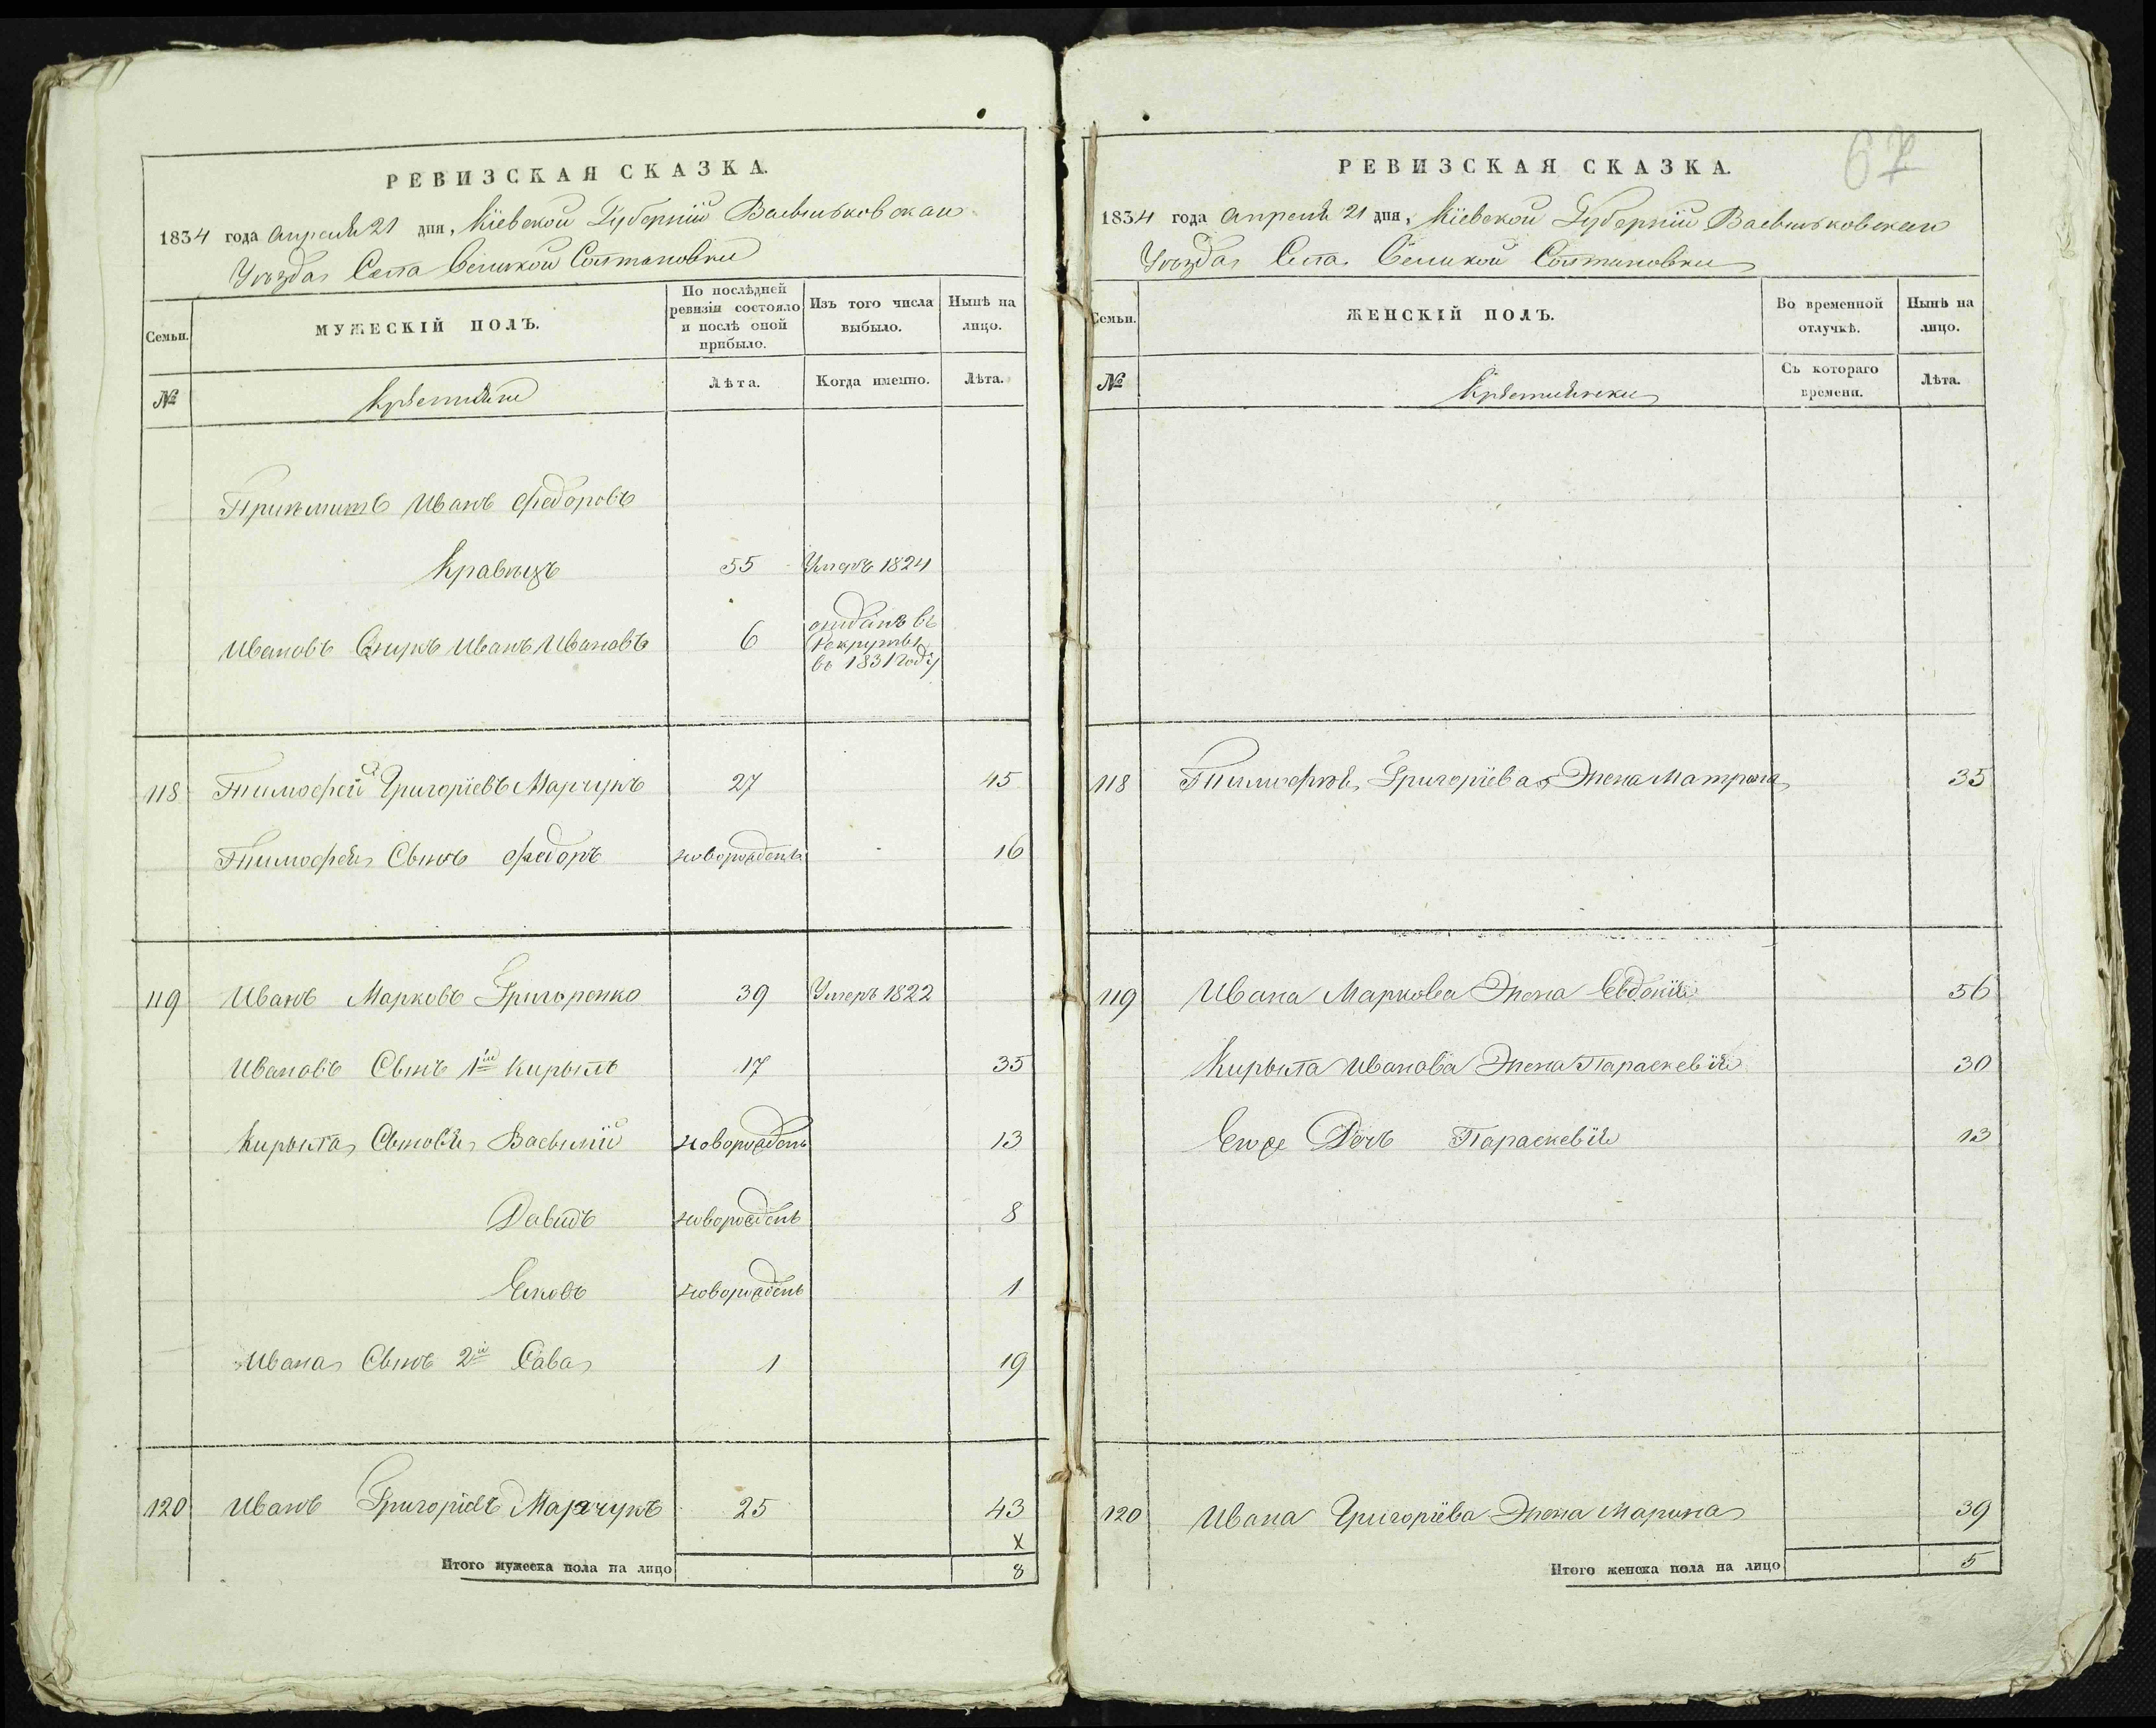 РЕВИЗСКАЯ СКАЗКА.
1834 года Апреля 21 дня, Кіевской Губерніи Васильковскаго
Уезда Села Великой Солтановки
Семьи.
МУЖЕСКІЙ ПОЛЪ.
По послѣдней ревизіи состояло и послѣ оной прибыло.
Изъ того числа выбыло.
Нынѣ на лицо.
№
Крестьяне
Лѣта.
Когда именно.
Лѣта.
Иванъ Федоровъ
Кравецъ 55 Умеръ 1824
Ивановъ Внукъ Иванъ Ивановъ 6 отданъ въ
рекруты
въ 1831 году
118 Тимофей Григоріевъ Марчукъ 27 45
Тимофея Сынъ Федоръ новорожденъ 16
119 Иванъ Марковъ Григоренко 39 Умеръ 1822
Ивановъ Сынъ 1й Кирылъ 17 35
Кирыла Сыновья Василій новорожденъ 13
Давидъ новорожденъ 8
Яковъ новорожденъ 1
Ивана Сынъ 2й Сава 1 19
120 Иванъ Григоріевъ Марчукъ 25 43
х
Итого мужеска пола на лицо 8
67
РЕВИЗСКАЯ СКАЗКА.
1834 года Апреля 21 дня, Кіевской Губерніи Васильковскаго
Уезда Села Великой Солтановки
Семьи.
ЖЕНСКІЙ ПОЛЪ.
Во временной отлучкѣ.
Нынѣ на лицо.
№
Крестьянки
Съ котораго времени.
Лѣта.
118 Тимофея Григоріева Жена Матрона 35
119 Ивана Маркова Жена Евдокія 56
Кирыла Иванова Жена Параскевія 30
Егоже Дочь Параскевія 13
120 Ивана Григоріева Жена Марина 39
Итого женска пола на лицо 5